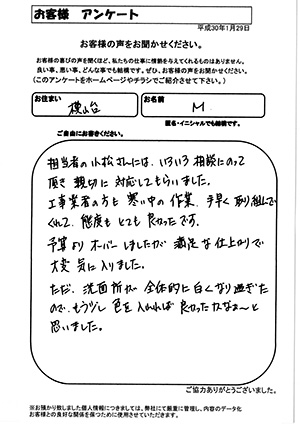 お客様 アンケート
平成30年1月29日
お客様の声をお聞かせください。
お客様の喜びの声を聞くほど、私たちの仕事に情熱を与えてくれるものはありません。
良い事、悪い事、どんな事でも結構です。ぜひ、お客様の声をお聞かせください。
(このアンケートをホームページやチラシでご紹介させて下さい。)
お住まい
横山台
お名前
M
匿名・イニシャルでも結構です。
ご自由にお書きください。
担当者の小松さんには、いろいろ相談にのって
頂き 親切に対応してもらいました。
工事業者の方も 寒い中の作業、手早く取り組んで
くれて、態度も とても 良かったです。
予算より オーバーしましたが 満足な仕上がりで
大変 気に入りました。
ただ、洗面所が 全体的に白くなり過ぎた
ので、もう少し 色を入れれば 良かったかなぁ〜と
思いました。
ご協力ありがとうございました。
※お預かり致しました個人情報につきましては、弊社にて厳重に管理し、内容のデータ化
お客様との良好な関係を保つために使用させていただきます。